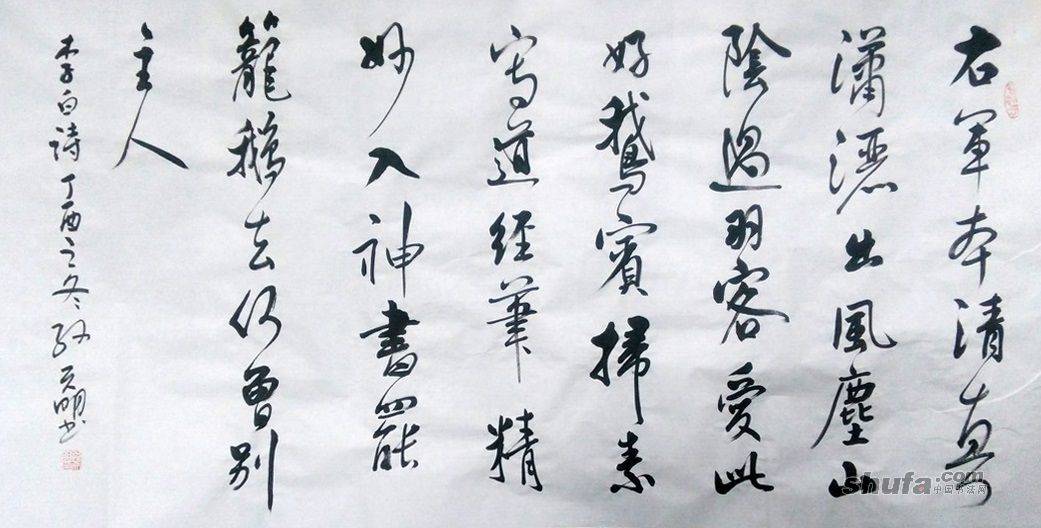 右軍本清真
瀟灑出風塵山
陰過羽客愛此
好鵝賓掃素
寫道經筆精
妙入神書罷
籠鵝去何曾別
主人
李白詩丁酉之冬孙明书
shufa.com
中国书法网